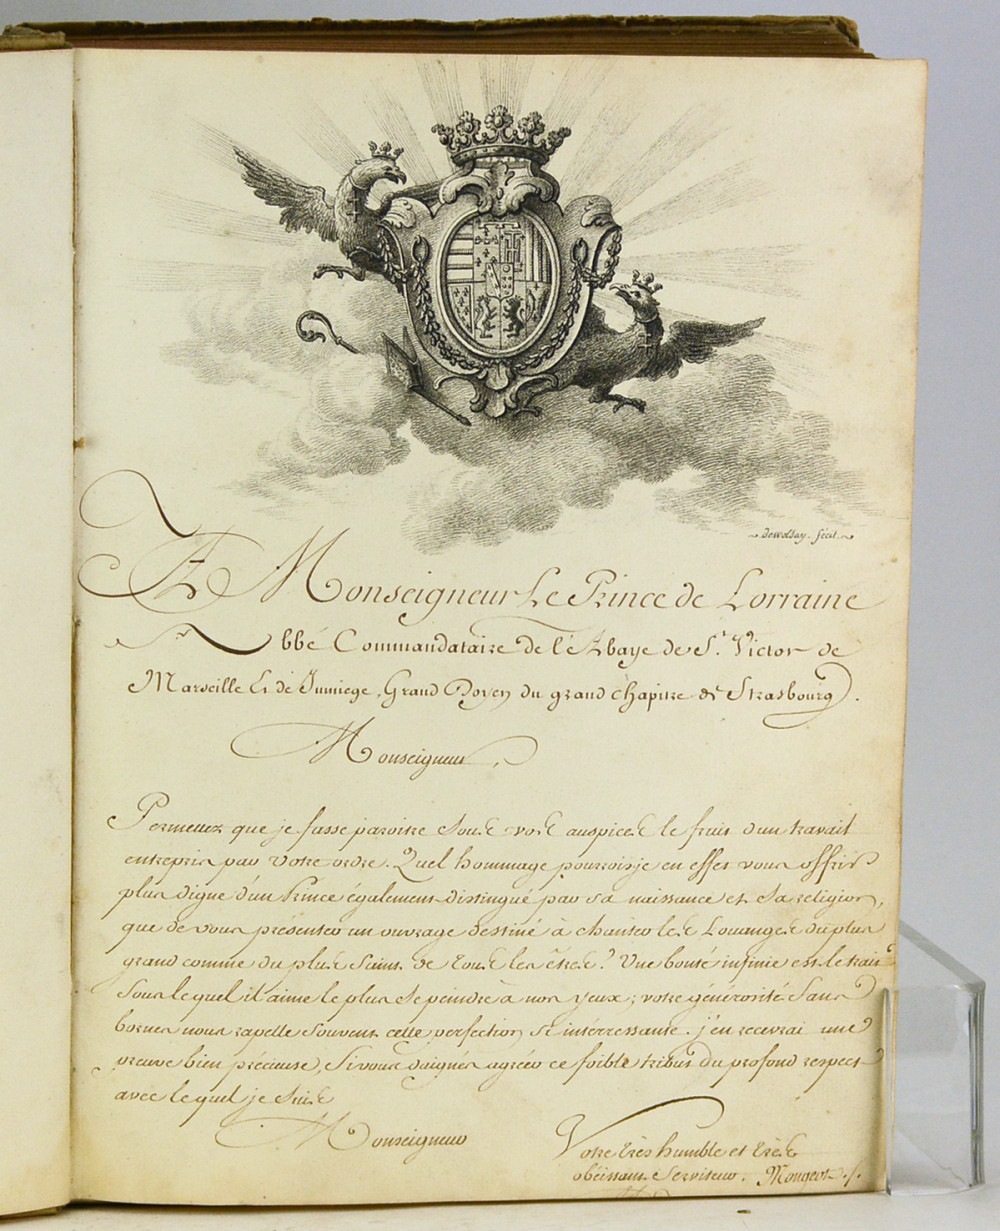 fecit.
A Monseigneur Le Prince de Lorraine
Abbé Commandataire de l'é Abaye de St. Victor de
Marseille Et de Jumiege, Grand Doyen du grand chapitre de Strasbourg.
Monseigneur,
Permettez que je fasse paroitre sous vos auspices le fruit d'un travail
entrepris par votre ordre. Quel hommage pourrois je en effet vous offrir
plus digne d'un Prince également distingué par sa naissance et sa religion,
que de vous présenter un ouvrage destiné à chanter les Louanges du plus
grand comme du plus Saint de tous les êtres? Une bonté infinie est le trait
sous lequel il aime le plus se peindre à nos yeux; votre générosité sans
bornes nous rapelle souvent cette perfection si intérressante. j'en recevrai une
preuve bien précieuse, si vous daignés agréer ce foible tribut du profond respect
avec lequel je suis
Monseigneur
Votre très humble et très
obéissant Serviteur. Mougeot